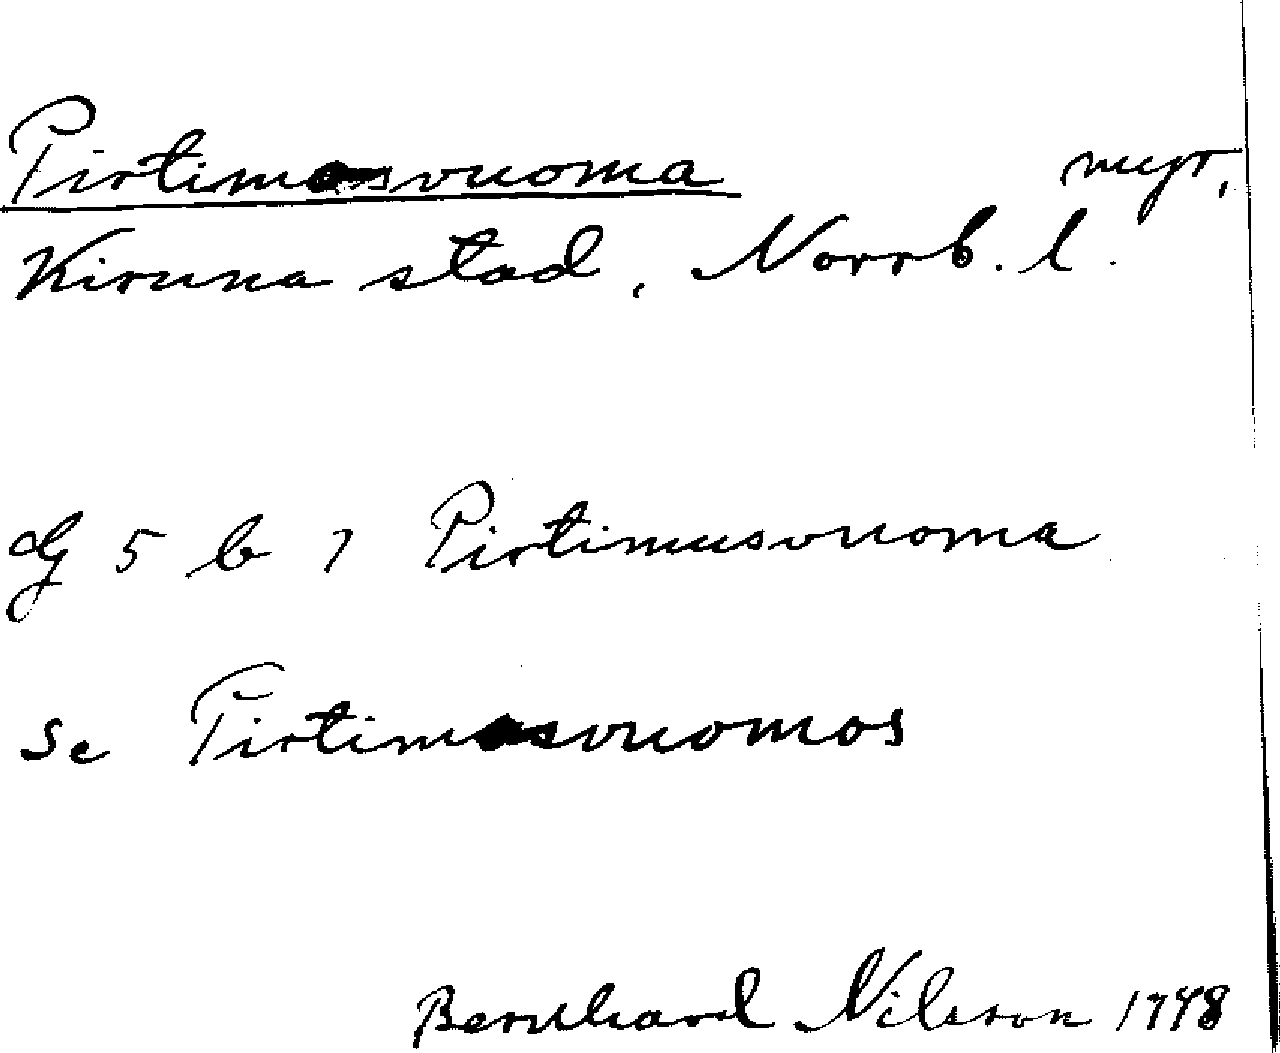 Pirtimosvuoma myr,
Kiruna stad, Norrb. l.
Gf 5 b 7 Pirtimusvuoma
se Pirtimosvuomos
Bernhard Nilsson 1948